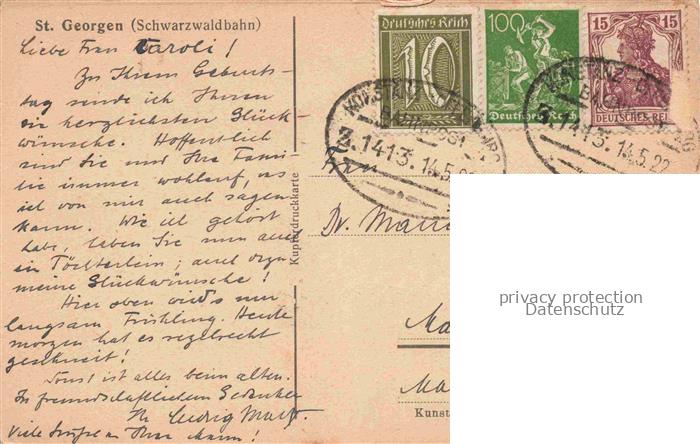 St. Georgen (Schwarzwaldbahn)
Liebe Frau Caroli!
Zu Ihrem Geburts-
tag sende ich Ihnen
die herzlichsten Glück-
wünsche. Hoffentlich
sind Sie und Ihre Fami-
lie immer wohlauf, was
ich von mir auch sagen
kann. Wie ich gehört
habe, haben Sie nun auch
ein Töchterlein; auch dazu
meine Glückwünsche!
Hier oben wird's nur
langsam Frühling. Heute
morgen hat es regelrecht
geschneit!
Sonst ist alles beim alten.
In freundschaftlichem Gedenken
Ihr Ludwig
Viele Grüße an Ihren Mann!
Kupferdruckkarte
Deutsches Reich
10
100
Deutsches Reich
15 15
DEUTSCHES REICH
KONSTANZ
BAHNPOST
Z.1413. 14.5.22
KONSTANZ
Z.1413. 14.5.22
Frau
Dr.
Ma
Ma
Kunst
privacy protection
Datenschutz